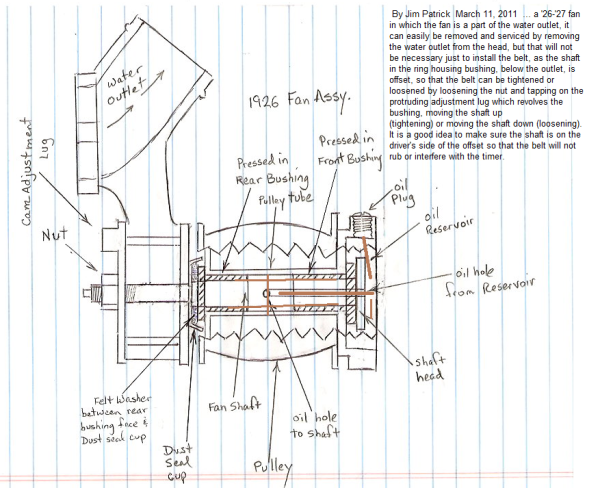 By Jim Patrick March 11, 2011 ... a '26-'27 fan
in which the fan is a part of the water outlet, it
can easily be removed and serviced by removing
the water outlet from the head, but that will not
be necessary just to install the belt, as the shaft
in the ring housing bushing, below the outlet, is
offset, so that the belt can be tightened or
loosened by loosening the nut and tapping on the
protruding adjustment lug which revolves the
bushing, moving the shaft up
(tightening) or moving the shaft down (loosening).
It is a good idea to make sure the shaft is on the
driver's side of the offset so that the belt will not
rub or interfere with the timer.
water
outlet
1926 Fan Assy.
Cam Adjustment
Lug
Nut
Pressed in
Rear Bushing
Pulley tube
Pressed in
Front Bushing
oil
Plug
oil
Reservoir
oil hole
from Reservoir
shaft
head
Felt Washer
between rear
bushing face &
Dust seal cup
Dust
Seal
Cup
Fan Shaft
Pulley
oil hole
to shaft